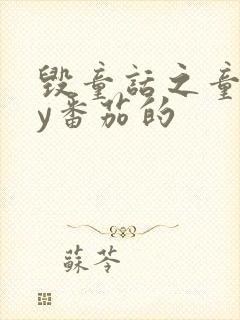 毁童话之童
y番茄的
蘇苓